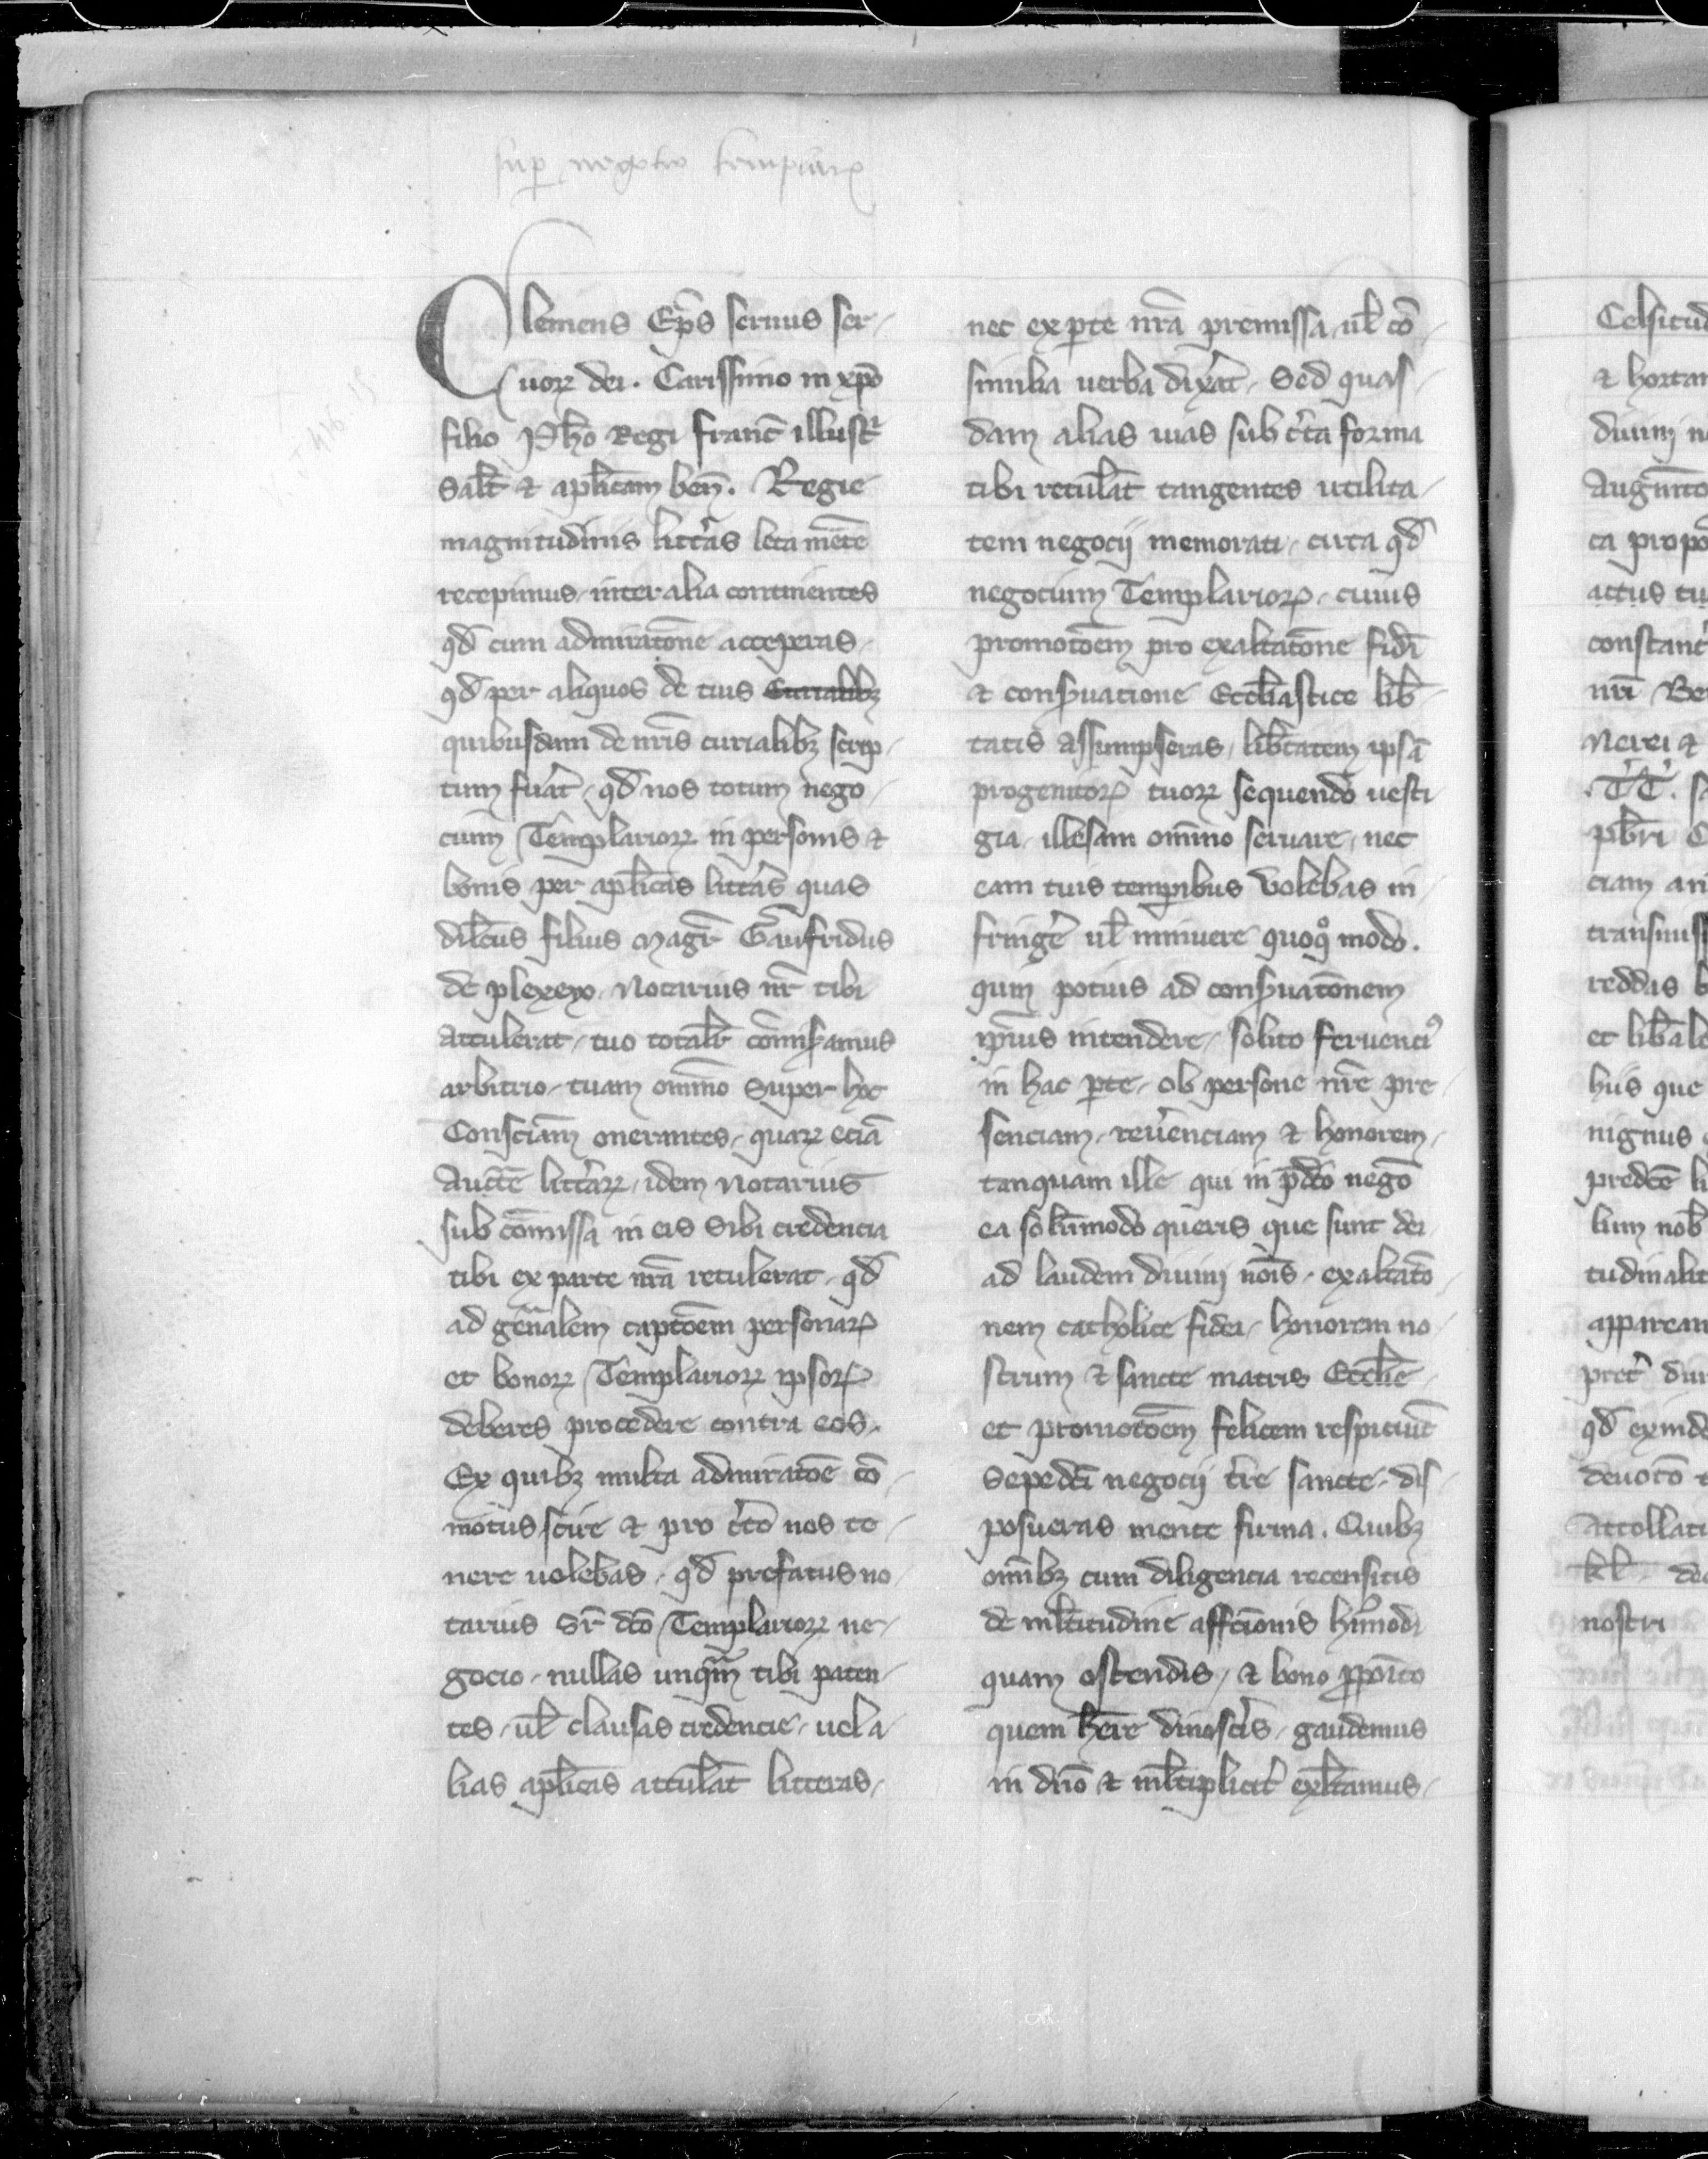 sup negotio templariorꝝ
Clemens Ep̄s seruus ser-
uorꝝ dei. Carissimo in xp̄o
filio Ph̄o Regi Franc̄ illustr̄
Salt̄ ⁊ aplīcam ben̄. Regie
magnitudinis litt̄as leta mēte
recepimus, inter alia continentes
qd̄ cum admiratōne acceperas,
qd̄ per aliquos de tuis Curialibꝫ
quibusdam de nr̄is curialibꝫ scrip-
tum fūat, qd̄ nos totum nego-
cium Templariorꝝ in personis ⁊
bonis per aplīcas litt̄as quas
dilc̄us filius Magr̄ Gaufridus
de plexeyo Notarius nr̄ tibi
Attulerat, tuo totalīr cōmiseramus
arbitrio, tuam om̄ino super hoc
Consciam̄ onerantes, quarꝝ eciā
Auctē litt̄arꝝ, idem Notarius
sub cōmissa in eis sibi credencia
tibi ex parte nrā retulerat, qd̄
ad gen̄alem captōem personarꝝ
et bonorꝝ Templariorꝝ ipsorꝝ
deberes procedere contra eos.
Ex quibꝫ multa admiratōe cō-
motus scire ⁊ pro c̄to nos te-
nere uolebas, qd̄ prefatus no-
tarius sr̄ dc̄o Templariorꝝ ne-
gocio, nullas unq̄m tibi paten-
tes, ul̄ clausas credencie, uel a-
lias aplīcas attul̄at litteras,
nec ex ꝑte nrā premissa, ul̄ cō-
similia uerba dix̄at, Sed quas-
dam alias uias sub c̄ta forma
tibi retul̄at tangentes utilita-
tem negocij memorati, circa qd̄
negocium Templariorꝝ, cuius
promotōem pro exaltatōne fidi
⁊ conseruacione Eccl̄iastice lib̄-
tatis assumpseras, lib̄tatem ipsā
progenitorꝝ tuorꝝ sequendo uesti-
gia, illesam om̄ino seruare, nec
eam tuis temporibus Volebas in-
fringe ul̄ minuere quoqo modo.
quin potius ad conseruatōnem
ip̄ius intendere, solito feruenciꝰ
in hac ꝑte, ob persone nr̄e pre-
senciam, reūenciam ⁊ honorem,
tanquam ille qui in p̄dc̄o negō
ea solūmodo queris que sunt dei
ad laudem diuinj nōis, exaltatō-
nem catholice fidei, honorem no-
strum ⁊ sancte matris Eccl̄ie,
et promotōem felicem respiciūt
Sepedc̄i negocij t̄re sancte, dis-
posueras mente firma. Quibꝫ
om̄ibꝫ cum diligencia recensitis
de ml̄titudine affc̄ionis hīmodi
quam ostendis, ⁊ bono ꝓpoīto
quem hēre dinosc̄is, gaudemus
in dn̄o ⁊ ml̄tiplicit̄ exl̄tamus,
Celsitud
⁊ hortan
diuini n
Augm̄to
ca propo
actus tu
constanc
nr̄i Be
Nerei ⁊
.T'T'. s
pb̄ri C
ciam an
transmiss
reddas b
et lib̄ale
hiis que
nignus
predc̄e li
lium nob̄
tudinalit
apparean
pret̄ diu
qd̄ exinde
deuotō
Attollati
kl. de
nostri